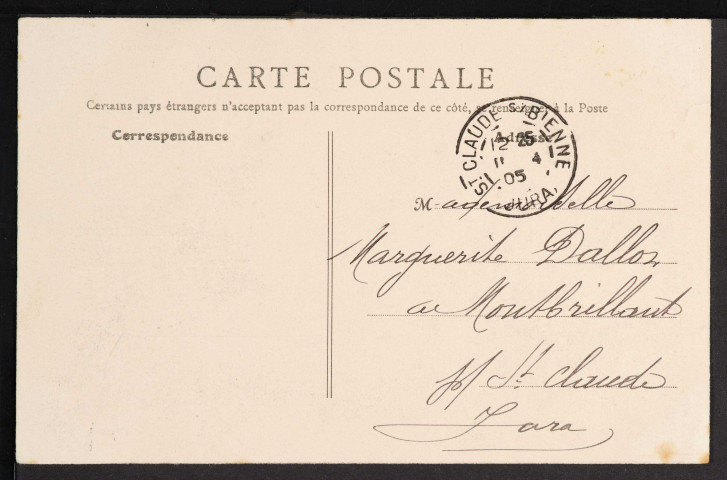 CARTE POSTALE
Certains pays étrangers n'acceptant pas la correspondance de ce côté, se renseigner à la Poste
Correspondance
Adresse
ST CLAUDE S. BIENNE
12 25
11 4
05
JURA
Mademoiselle
Marguerite Dalloz
à Montbrillant
pl St Claude
Jura